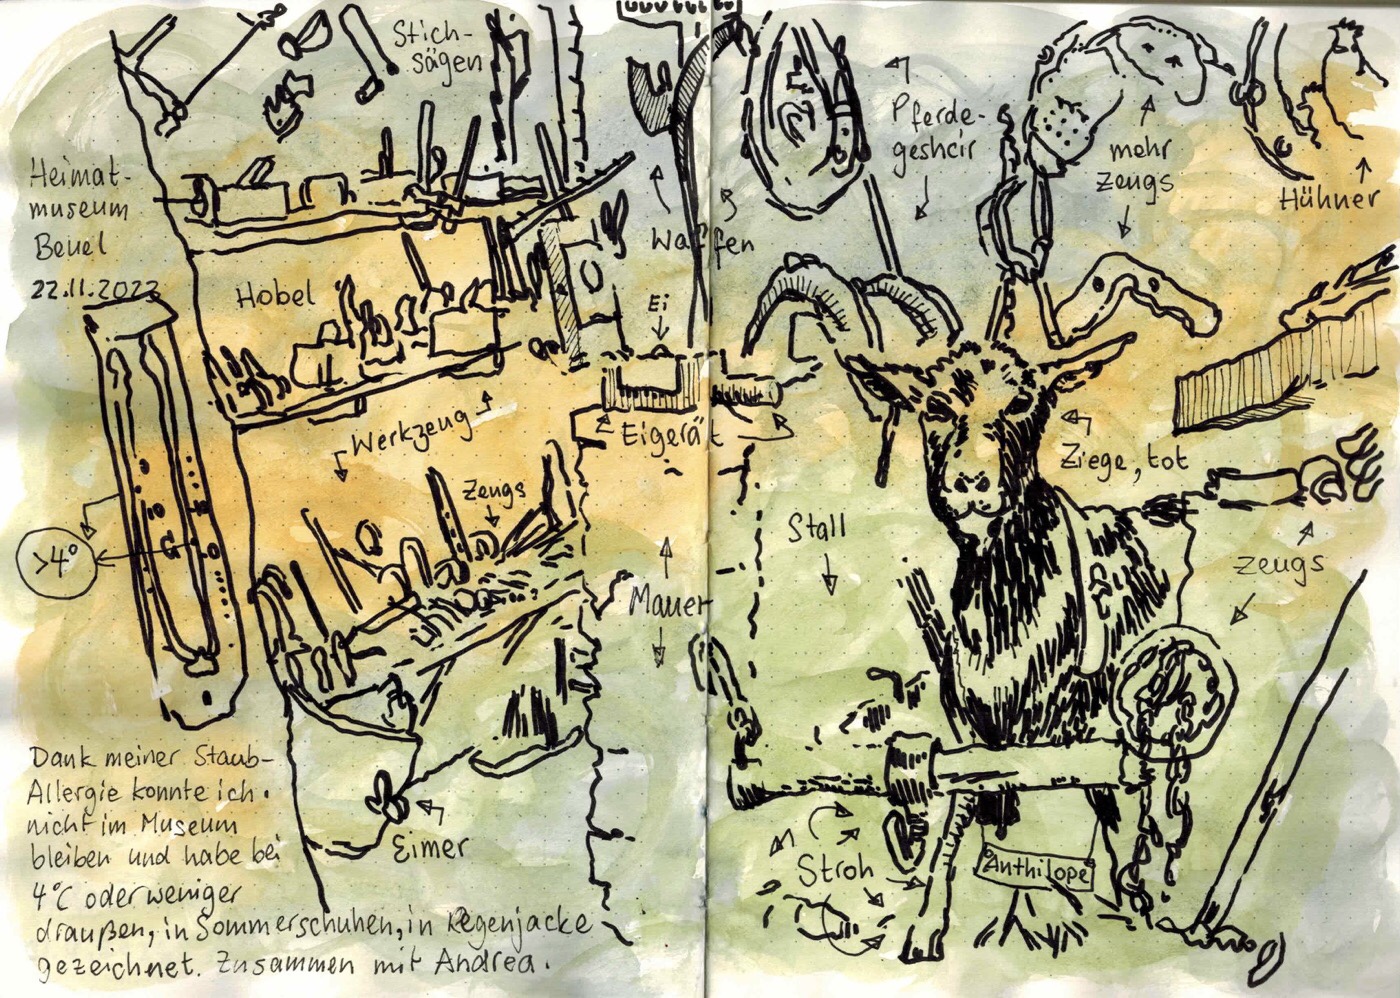 Stich-
sägen
Heimat-
museum
Beuel
22.11.2022
Hobel
Werkzeug
Zeugs
>4°
Waffen
Ei
Eigerät
Mauer
Eimer
Dank meiner Staub-
Allergie konnte ich
nicht im Museum
bleiben und habe bei
4°C oder weniger
draußen, in Sommerschuhen, in Regenjacke
gezeichnet. Zusammen mit Andrea.
Pferde-
geshcir
mehr
zeugs
Hühner
Ziege, tot
Stall
zeugs
Stroh
Anthilope